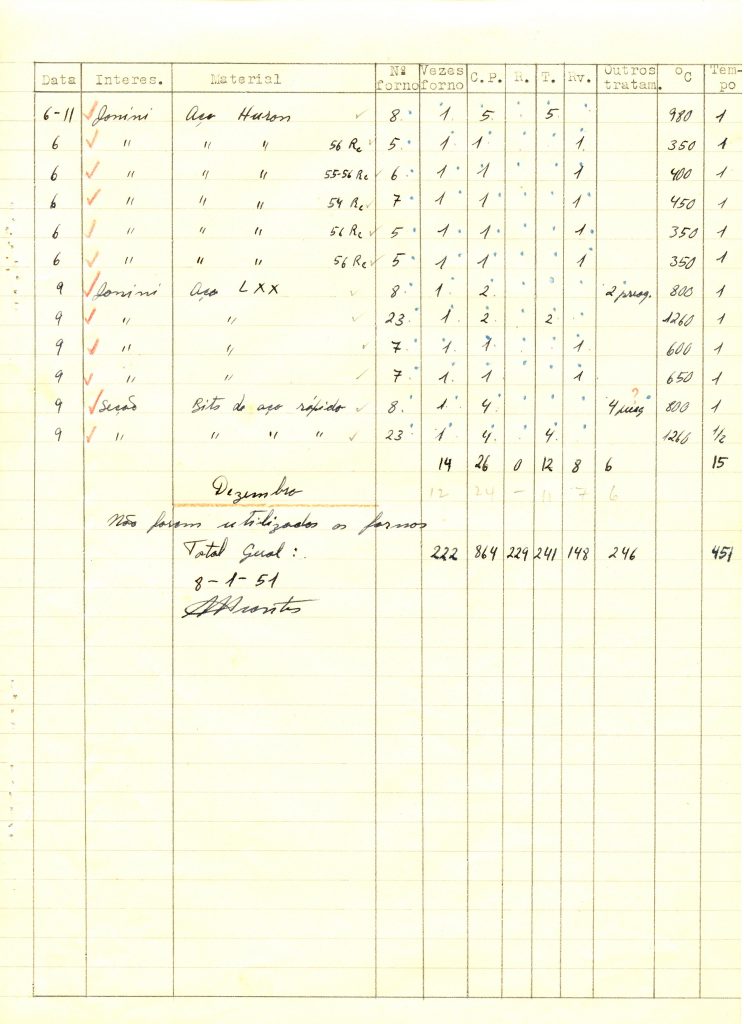 Data Interes. Material Nº forno Vezes forno C.P. R. T. Rv. Outros tratam. ºC Tempo
6-11 Jonini Aço Huron 8 1 5 5 980 1
6 " " " 56 Rc 5 1 1 1 350 1
6 " " " 55-56 Rc 6 1 1 1 400 1
6 " " " 54 Rc 7 1 1 1 450 1
6 " " " 56 Rc 5 1 1 1 350 1
6 " " " 56 Rc 5 1 1 1 350 1
9 Jonini Aço LXX 8 1 2 2 800 1
9 " " 23 1 2 2 1260 1
9 " " 7 1 1 1 600 1
9 " " 7 1 1 1 650 1
9 Secão Bits de aço rápido 8 1 4 4 ? 800 1
9 " " " " 23 1 4 4 1260 1/2
14 26 0 12 8 6 15
Dezembro 12 24 - 11 7 6
Não foram utilizados os fornos
Total Geral: 222 864 229 241 148 246 451
8-1-51